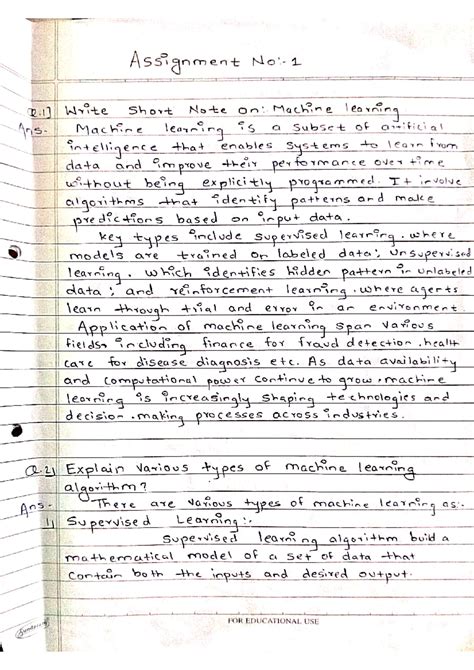 Assignment No:- 1
Q.1] Write Short Note on: Machine learning
Ans. Machine learning is a subset of artificial
intelligence that enables systems to learn from
data and improve their performance over time
without being explicitly programmed. It involve
algorithms that identify patterns and make
predictions based on input data.
key types include supervised learning. where
models are trained on labeled data; unsupervised
learning. which identifies hidden pattern in unlabeled
data; and reinforcement learning. where agents
learn through trial and error in an environment
Application of machine learning span various
fields. including finance for fraud detection. health
care for disease diagnosis etc. As data availability
and computational power continue to grow. machine
learning is increasingly shaping technologies and
decision-making processes across industries.
Q.2] Explain various types of machine learning
algorithm?
Ans- There are various types of machine learning as:-
1] Supervised Learning:-
Supervised learning algorithm build a
mathematical model of a set of data that
contain both the inputs and desired output.
FOR EDUCATIONAL USE